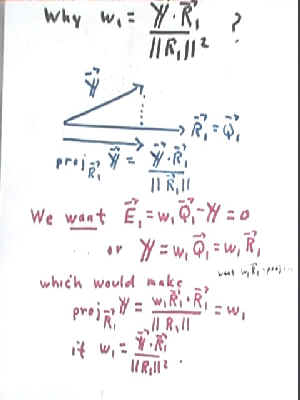 Why w₁ = Y⃗ · R⃗₁ / ||R₁||² ?
Y⃗
R⃗₁ = Q⃗₁
proj R⃗₁ Y⃗ = Y⃗ · R⃗₁ / ||R⃗₁||
We want E⃗₁ = w₁Q⃗₁ - Y = 0
or Y = w₁Q⃗₁ = w₁R⃗₁
which would make
proj R⃗₁ Y = w₁R⃗₁ · R⃗₁ / ||R₁|| = w₁
if w₁ = Y⃗ · R⃗₁ / ||R₁||² .